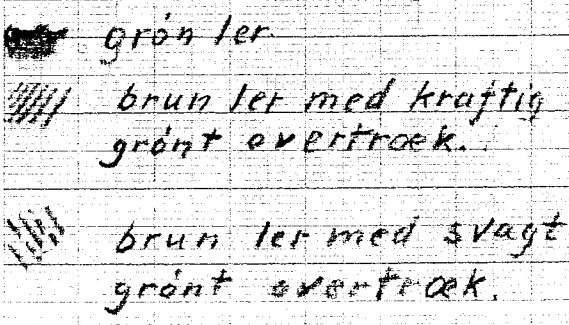 grón ler
brun ler med kraftig
grónt overtræk.
brun ler med svagt
grónt overtræk.